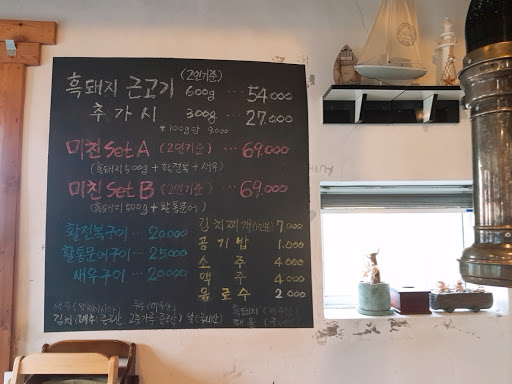 (2인기준)
흑돼지 근고기 600g ··· 54,000
추가시 300g ··· 27,000
* 100g당 9,000
미친 set A (2인기준) ··· 69,000
(흑돼지 500g + 활전복 + 새우)
미친 set B (2인기준) ··· 69,000
(흑돼지 500g + 활동문어)
활전복구이 ··· 20,000
활동문어구이 ··· 25,000
새우구이 ··· 20,000
김치찌개 7,000
공기밥 1,000
소주 4,000
맥주 4,000
음료수 2,000
김치 (배추: 고춧가루: 쌀 (국내산)
흑돼지